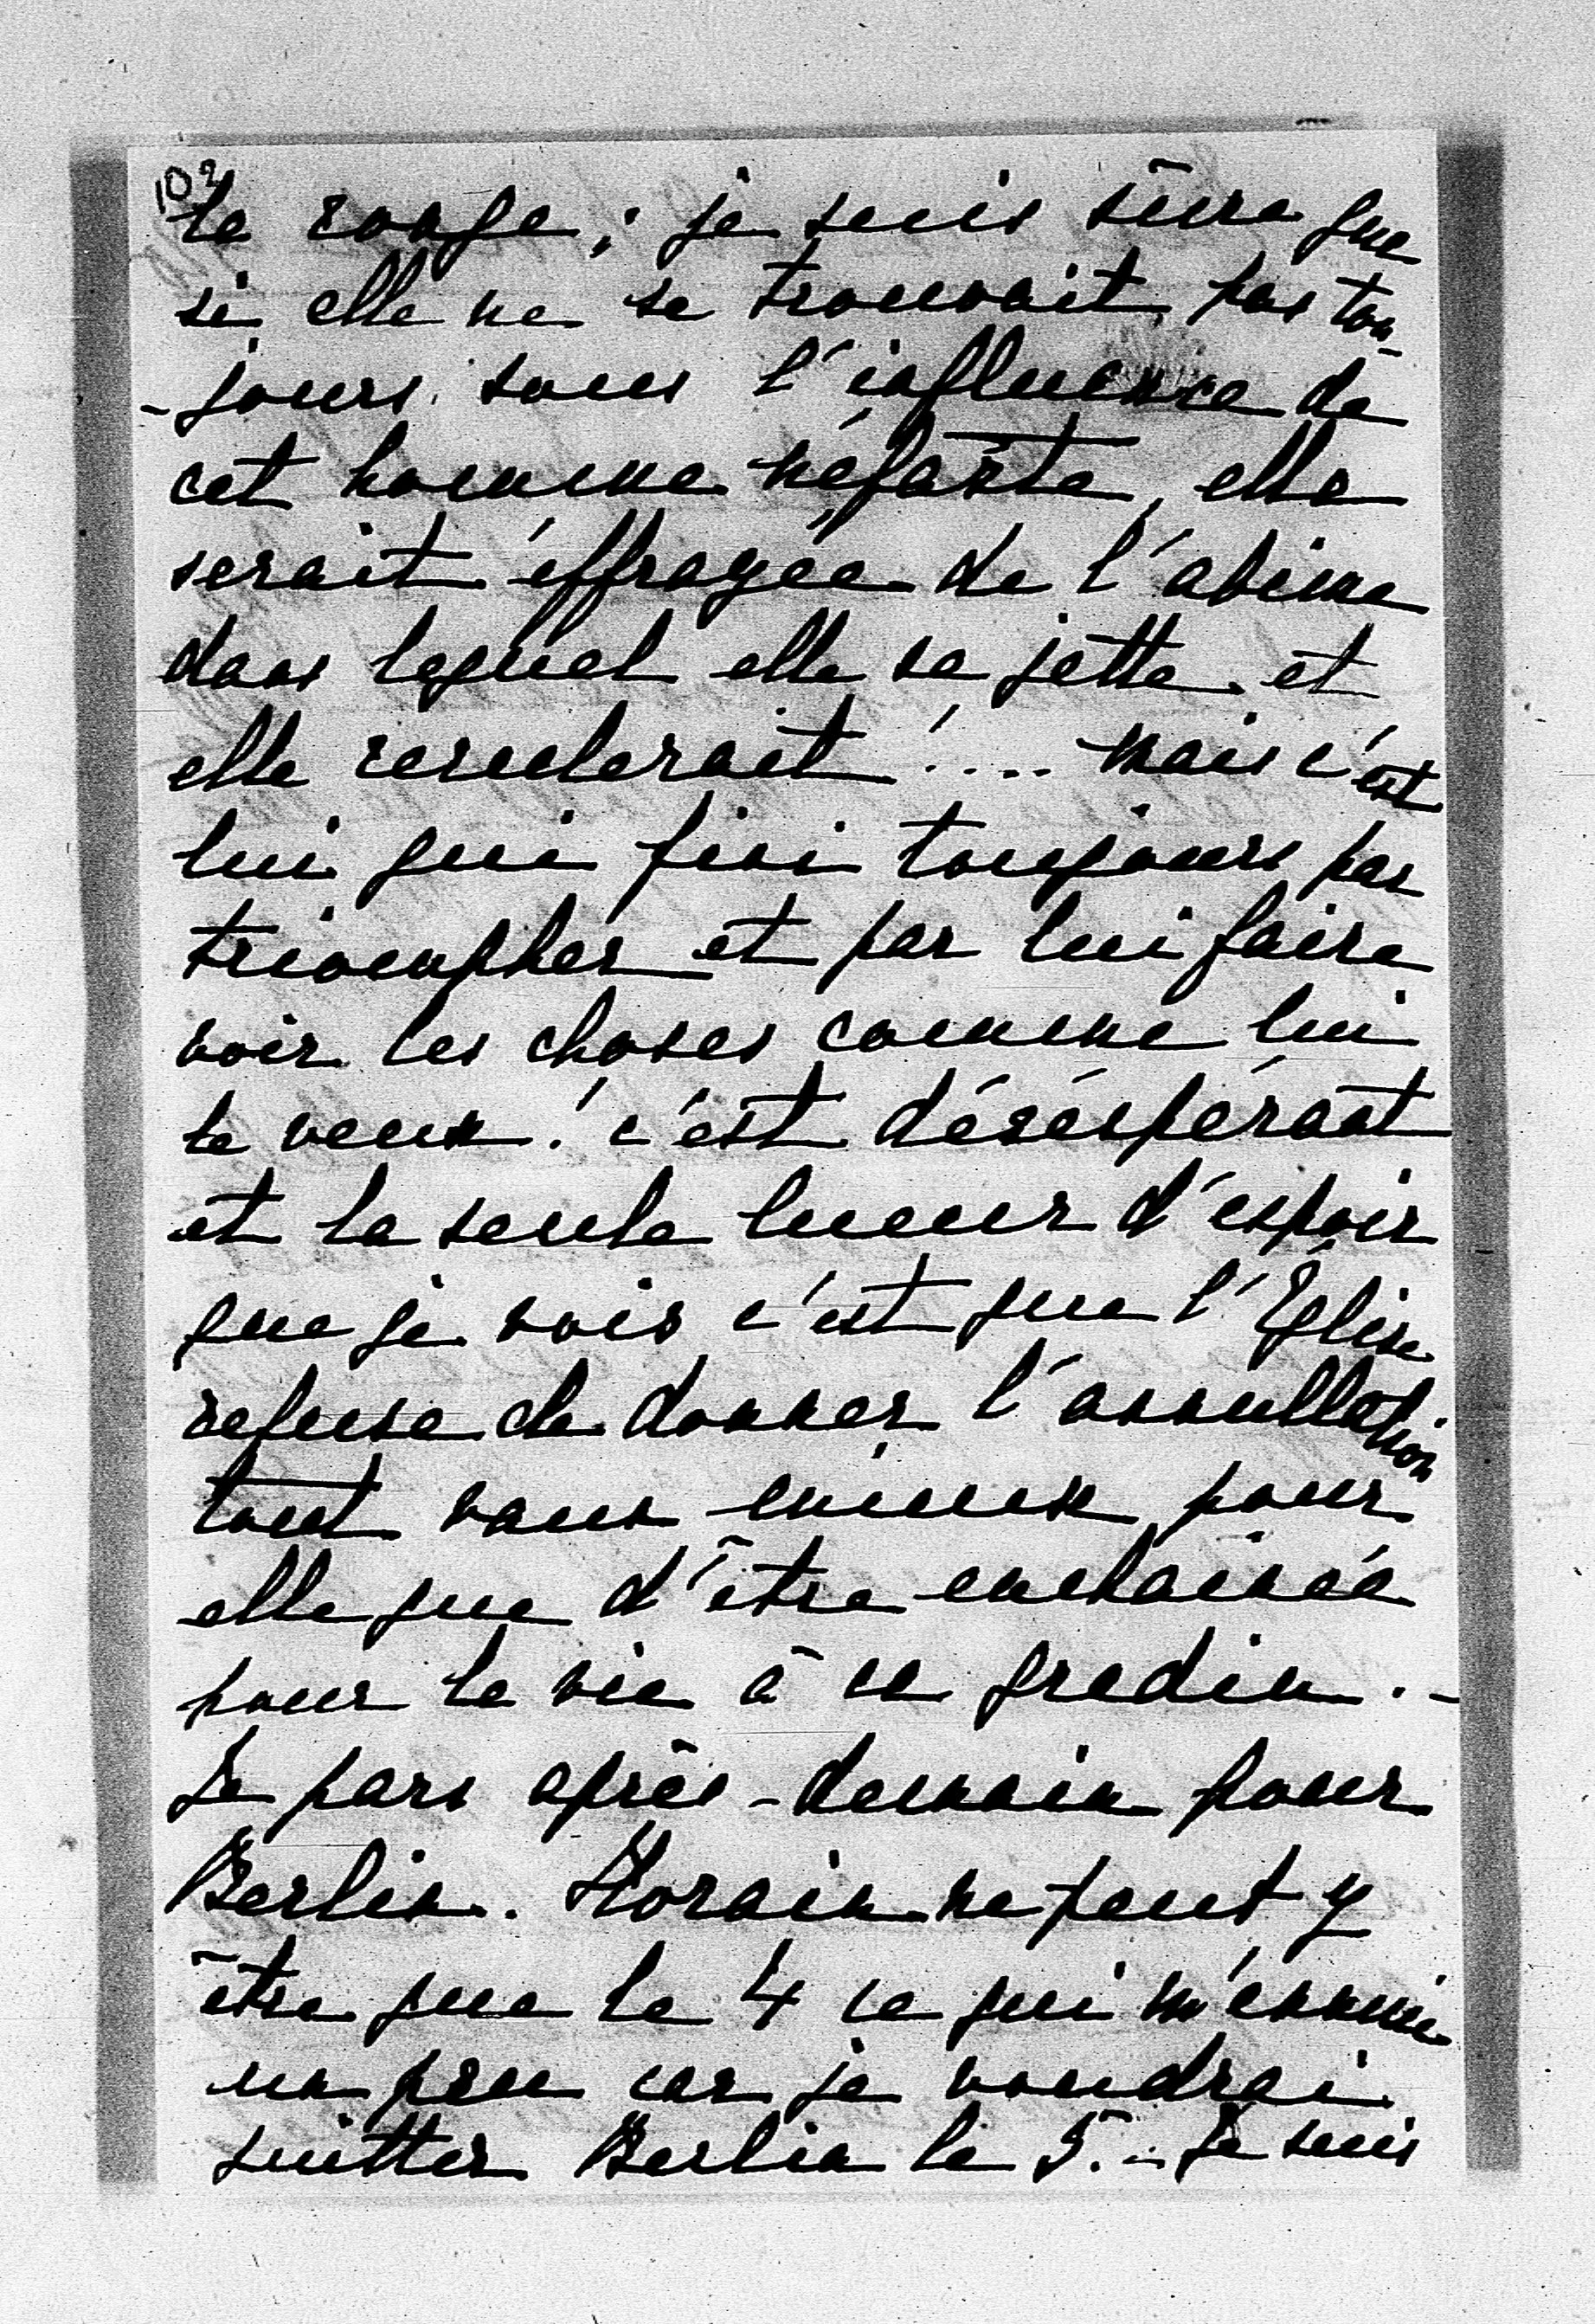 102
la ronge ; je suis sûre que
si elle ne se trouvait pas tou-
-jours sous l'influence de
cet homme néfaste, elle
serait éffrayée de l'abime
dans lequel elle se jette et
elle reculerait !.... Mais c'est
lui qui fini toujours par
triompher et par lui faire
voir les choses comme lui
le veux ! c'est désespérant
et la seule lueur d'espoir
que je vois c'est que l'Eglise
refuse de donner l'annullation
tout vaus mieux pour
elle que d'être enchaînée
pour la vie à ce gredin . -
Je pars après-demain pour
Berlin. Florain ne peut y
être que le 4 ce qui m'ennuie
un peu car je voudrai
quitter Berlin le 5. - Je suis